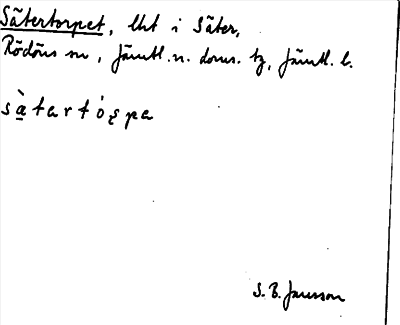 Sätertorpet, lht i Säter,
Rödöns sn, Jämtl. n. doms. tg, Jämtl. l.
sàtartórpa
S. B. Jansson